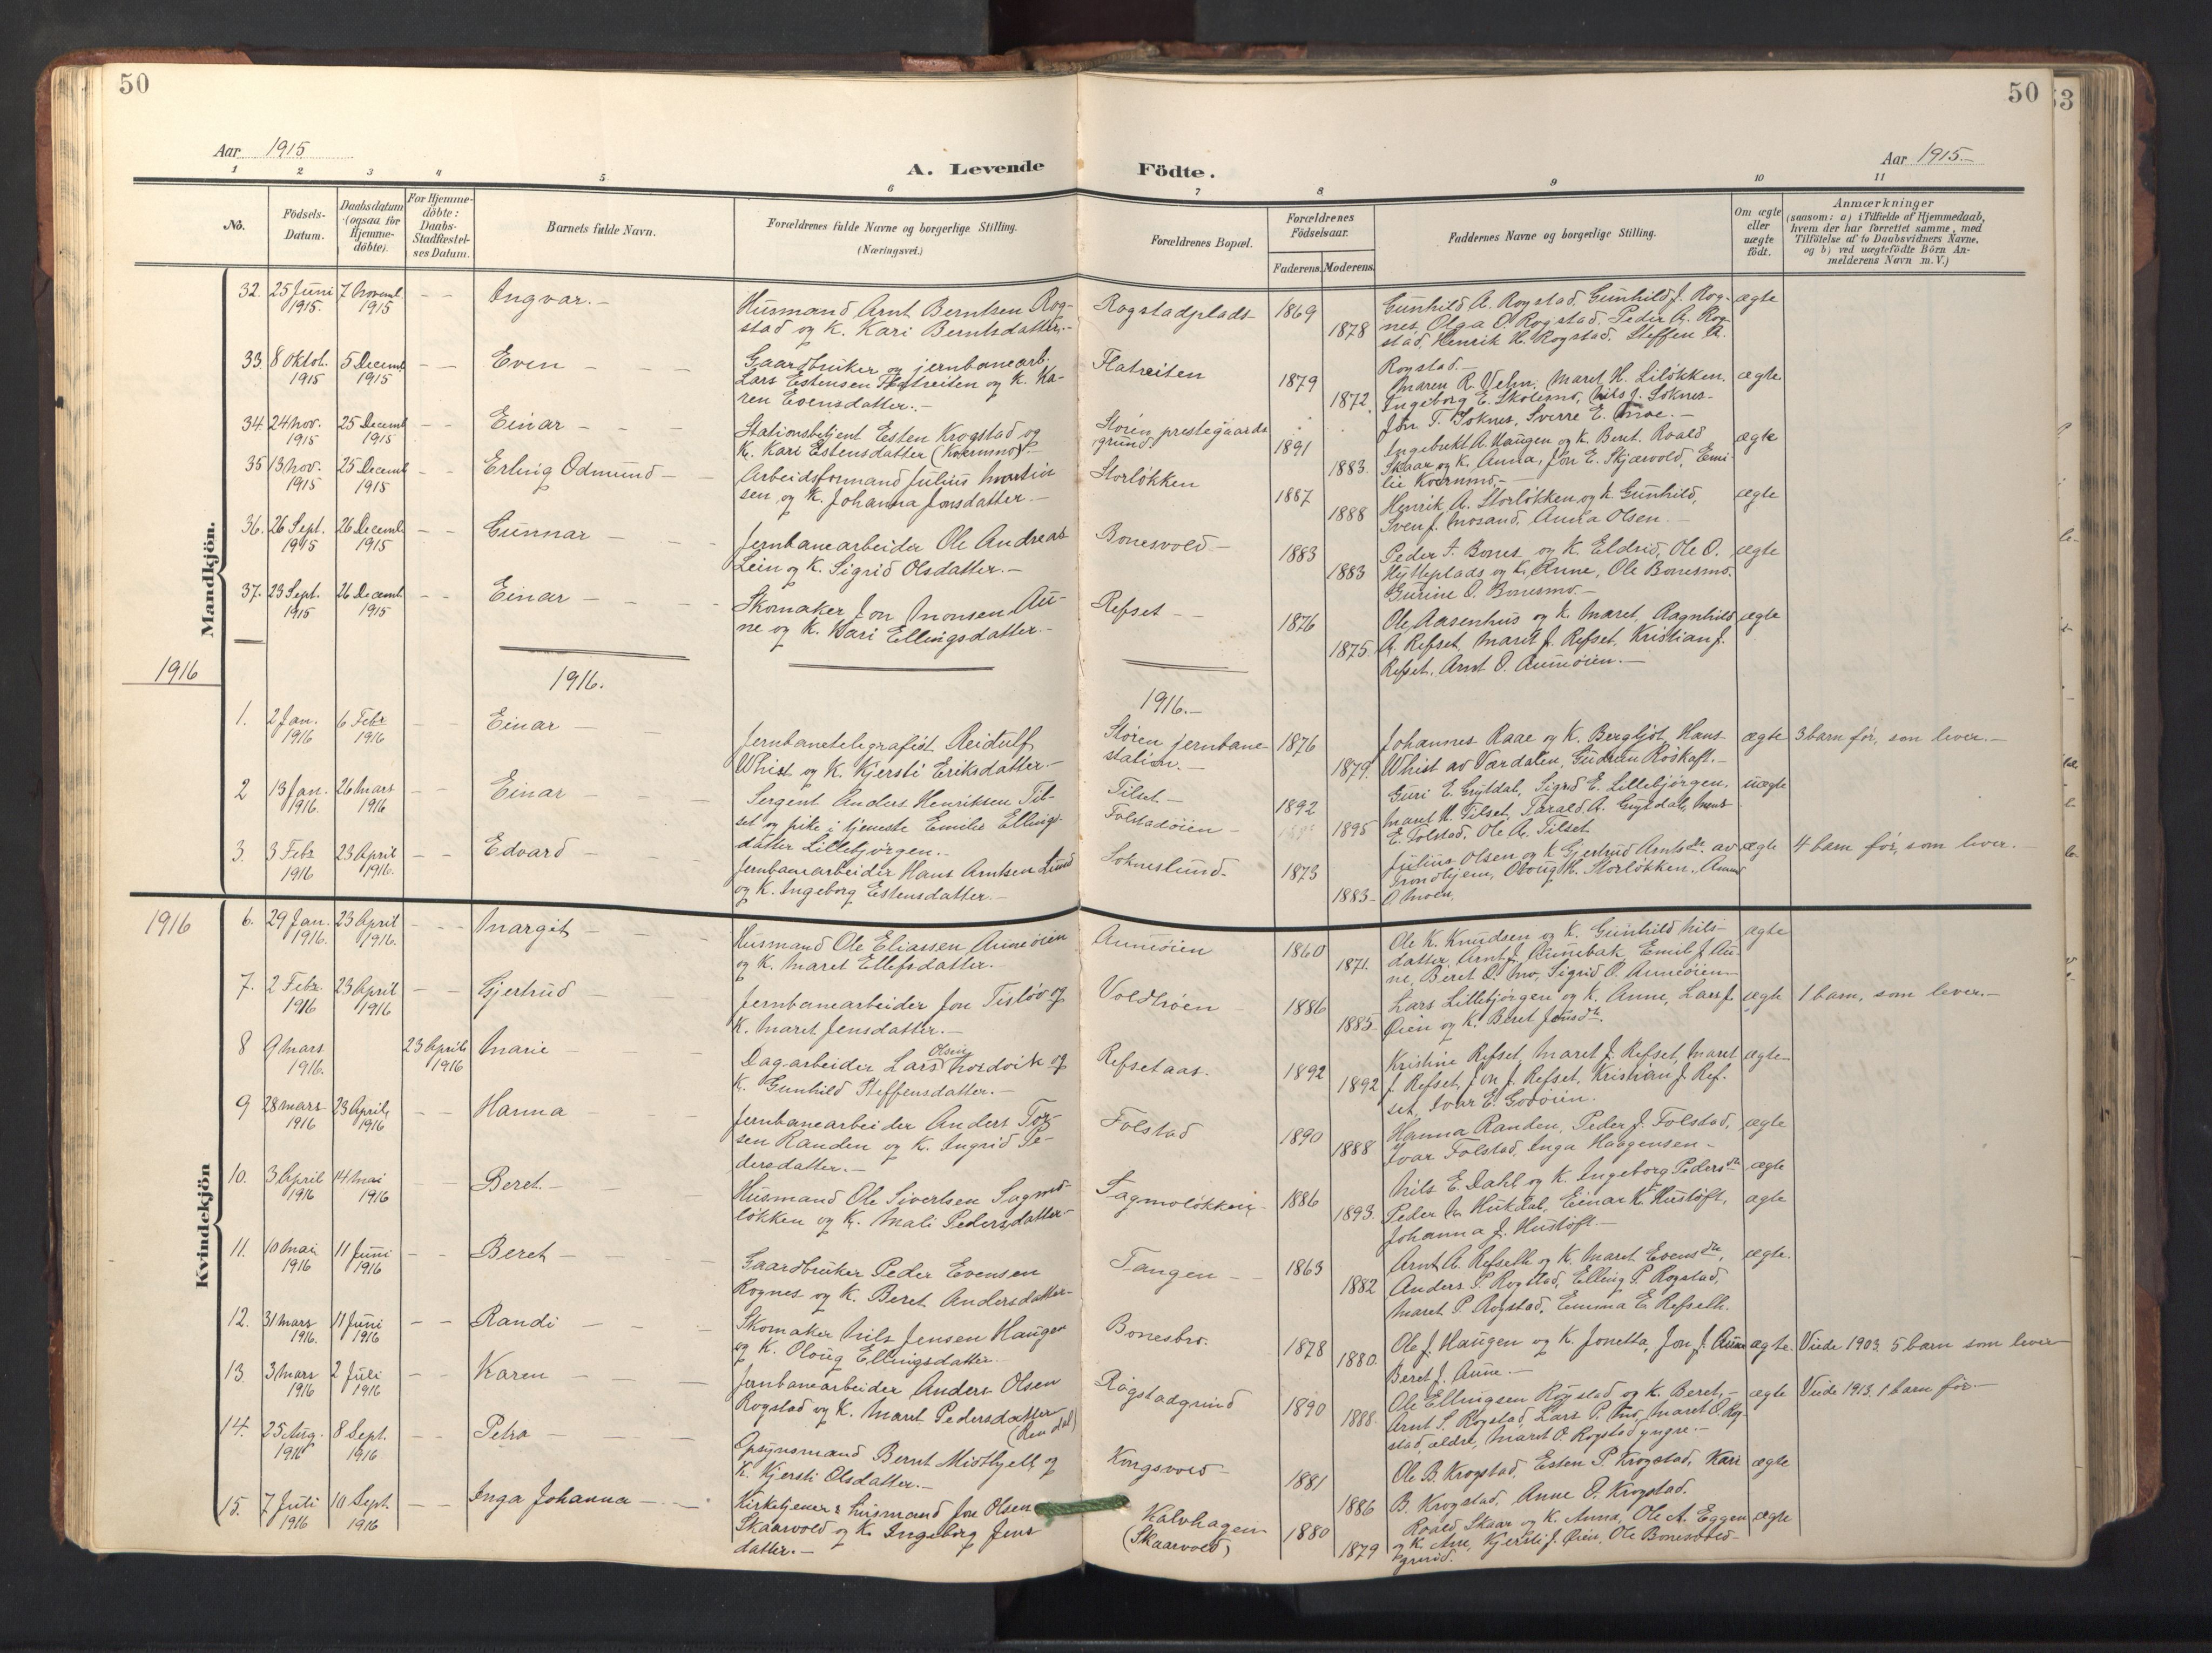 50
50
53
Aar 1915
A. Levende
Födte.
Aar 1915.-
1 2 3 4 5 6 7 8 9 10 11
No.
Födsels-
Datum.
Daabsdatum
(ogsaa for
Hjemme-
döbte).
For Hjemme-
döbte:
Daabs-
Stadfæstel-
ses Datum.
Barnets fulde Navn.
Forældrenes fulde Navne og borgerlige Stilling.
(Næringsvei.)
Forældrenes Bopæl.
Forældrenes
Födselsaar.
Faderens. Moderens.
Faddernes Navne og borgerlige Stilling.
Om ægte
eller
uægte
födt.
Anmærkninger
(saasom: a) i Tilfælde af Hjemmedaab,
hvem der har forrettet samme, med
Tilföielse af to Daabsvidners Navne,
og b) ved uægtefödte Börn An-
melderens Navn m. V.)
Mandkjön.
32. 25 Juni 1915. 7 Novemb. 1915 - - Ingvar. -
Husmand Arnt Berntsen Rog-
stad og K. Kari Berntsdatter. -
Rogstadplads 1869 1878
Gunhild A. Rogstad, Gunhild J. Rog-
nes, Olga O. Rogstad, Peder A. Rog-
stad, Henrik H. Rogstad, Steffen A.
Rogstad. -
ægte
33. 8 Oktob. 1915 5 Decemb 1915 - - Even - - -
Gaardbruker og jernbanearb.
Lars Estensen Flatreiten og K. Ka-
ren Evensdatter. -
Flatreiten 1879 1872.
Maren R. Velm, Maret H. Liløkken,
Ingeborg E. Skolesmo, Nils J. Soknes-
Jon T. Soknes, Sverre E. Moe. -
ægte
34. 24 Nov. 1915 25 Decemb 1915 - - Einar - - -
Stationsbetjent Esten Krogstad og
K. Kari Estensdatter (Kvernmo) -
Støren prestegaards
grund. 1891 1883.
Ingebrikt A. Haugen og K. Beret. Roald
Skaar og K. Anna, Jon E. Skjærvold, Emi-
lie Kvernmo, -
ægte
35 13 Nov. 1915 25 Decemb 1915 - - Erling Odmund -
Arbeidsformand Julius Martin
sen og K. Johanna Jonsdatter. -
Storløkken 1887 1888
Henrik A. Storløkken og K. Gunhild,
Sven J. Mosand, Anna Olsen. -
ægte
36. 26 Sept. 1915 26 Decemb 1915 - - Gunnar - - -
Jernbanearbeider Ole Andreas
Lein og K. Sigrid Olsdatter. -
Bonesvold - 1883 1883
Peder A. Bones og K. Eldrid, Ole O.
Hytteplads og K. Anne, Ole Bonesmo.
Gurine O. Bonesmo. -
ægte
37. 23 Sept. 1915 26 Decemb 1915 - - Einar - - -
Skomaker Jon Monsen Au-
ne og K. Mari Ellingsdatter. -
Refset - 1876 1875.
Ole Aasenhus og K. Maret, Ragnhild
A. Refset, Marit J. Refset, Kristian J.
Refset, Arnt O. Aunøien. -
ægte
1916 1916. 1916. -
1. 2 Jan. 1916 6 Febr 1916 - - Einar - -
Jernbanetelegrafist Reidulf
Whist og K. Kjersti Eriksdatter. -
Støren jernbane-
station. - 1876 1879.
Johannes Raae og K. Bergljot, Hans
Whist av Værdalen, Gudrun Røskaft. -
ægte 3 barn før, som lever. -
2 13 Jan. 1916. 26 Mars 1916 - - Einar - -
Sergent Anders Henriksen Til-
set og pike i tjeneste Emilie Ellings-
datter Lillebjørgen. -
Tilset -
Folstadøien - 1892 1895
Guri E. Grytdal, Sigrid E. Lillebjørgen,
Maret H. Tilset, Tarald A. Grytdal, Mons
E. Folstad, Ole A. Tilset.
uægte
3. 3 Febr 1916 23 April 1916. - - Edvard - -
Jernbanearbeider Hans Arntsen Lund
og K. Ingeborg Estensdatter. -
Sokneslund. - 1873 1883 -
Julius Olsen og K. Gjertrud Arntsdr. av
Trondhjem, Oloug H. Storløkken,
O. Moen.
ægte 4 barn før, som lever. -
1916
Kvindekjön
6. 29 Jan. 1916. 23 April 1916. - - Margit - -
Husmand Ole Eliassen Aunøien
og K. Maret Ellefsdatter. -
Aunøien 1860 1871.
Ole K. Knudsen og K. Gunhild Nils-
datter, Arnt J. Aunebak, Emil J. Au-
ne, Beret O. Mo, Sigrid O. Aunøien. -
ægte
7. 2 Febr. 1916 23 April 1916 - - Gjertrud - -
Jernbanearbeider Jon Tisløv og
K. Maret Jensdatter. -
Voldhøen 1886 1885 -
Lars Lillebjørgen og K. Anne, Lars J.
Øien og K. Beret Jensdtr.
ægte 1 barn, som lever. -
8 9 Mars 1916. 23 April 1916 Marie - -
Dagarbeider Lars Olsen Nordvik og
K. Gunhild Steffensdatter. -
Refsetaas. 1892 1892
Kristine Refset, Maret J. Refset, Maret
J. Refset, Jon J. Refset, Kristian J. Ref-
set, Ivar E. Godøien.
ægte -
9 28 Mars 1916 23 April, 1916 - - Hanna - -
Jernbanearbeider Anders Tor-
sen Randen og K. Ingrid Pe-
dersdatter. -
Folstad 1890 1888
Hanna Randen, Peder J. Folstad,
Ivar Folstad, Inga Haagensen -
ægte
10. 3 April 1916 14 Mai 1916 - - Beret. - - -
Husmand Ole Sivertsen Sagmo-
løkken og K. Mali Pedersdatter -
Sagmoløkken - 1886 1893.
Nils E. Dahl og K. Ingeborg Pedersdtr.
Peder M. Hukdal, Einar K. Hustøft,
Johanna J. Hustøft -
ægte
ægte
11. 10 Mai 1916 11 Juni 1916 - - Beret - - -
Gaardbruker Peder Evensen
Rognes og K. Beret Andersdatter -
Tangen - - 1863 1882
Arnt A. Refseth og K. Maret Evensdtr.,
Anders P. Rogstad, Elling P. Rogstad,
Maret P. Rogstad, Emma E. Refseth.
ægte.
12. 31 Mars 1916. 11 Juni 1916 - - Randi - - -
Skomaker Nils Jensen Haugen
og K. Oloug Ellingsdatter.
Bonesbro. 1878 1880.
Ole J. Haugen og K. Jonetta, Jon J. Aune
Beret J. Aune. -
ægte. Viede 1903. 5 barn som lever
13. 3 Mars 1916 2 Juli 1916 - - Karen - - -
Jernbanearbeider Anders Olsen
Rogstad og K. Maret Pedersdatter
Rogstadgrund 1890 1888.
Ole Ellingsen Rogstad og K. Beret, -
Arnt S. Rogstad, Lars P. Mo, Maret O. Rog-
stad, ældre, Maret O. Rogstad yngre. -
ægte Viede 1913. 1 barn før. -
14. 25 Aug. 1916 8 Sept. 1916 - - Petra - - -
Opsynsmand Bernt Midthjell og
K. Kjersti Olsdatter. -
Kongsvold - 1881 1886
Ole B. Krogstad, Esten P. Krogstad, Kari
B. Krogstad, Anne O. Krogstad.
ægte
15. 7 Juli 1916 10 Sept. 1916 - - Inga Johanna - -
Kirketjener & husmand Jon Olsen
Skaarvold og K. Ingeborg Jens
datter. -
Kalvhagen
(Skaarvold) 1880 1879
Roald Skaar og K. Anna, Ole A. Eggen
og K. Ane, Kjersti J. Øien, Ole Bonesvold-
grind.
ægte